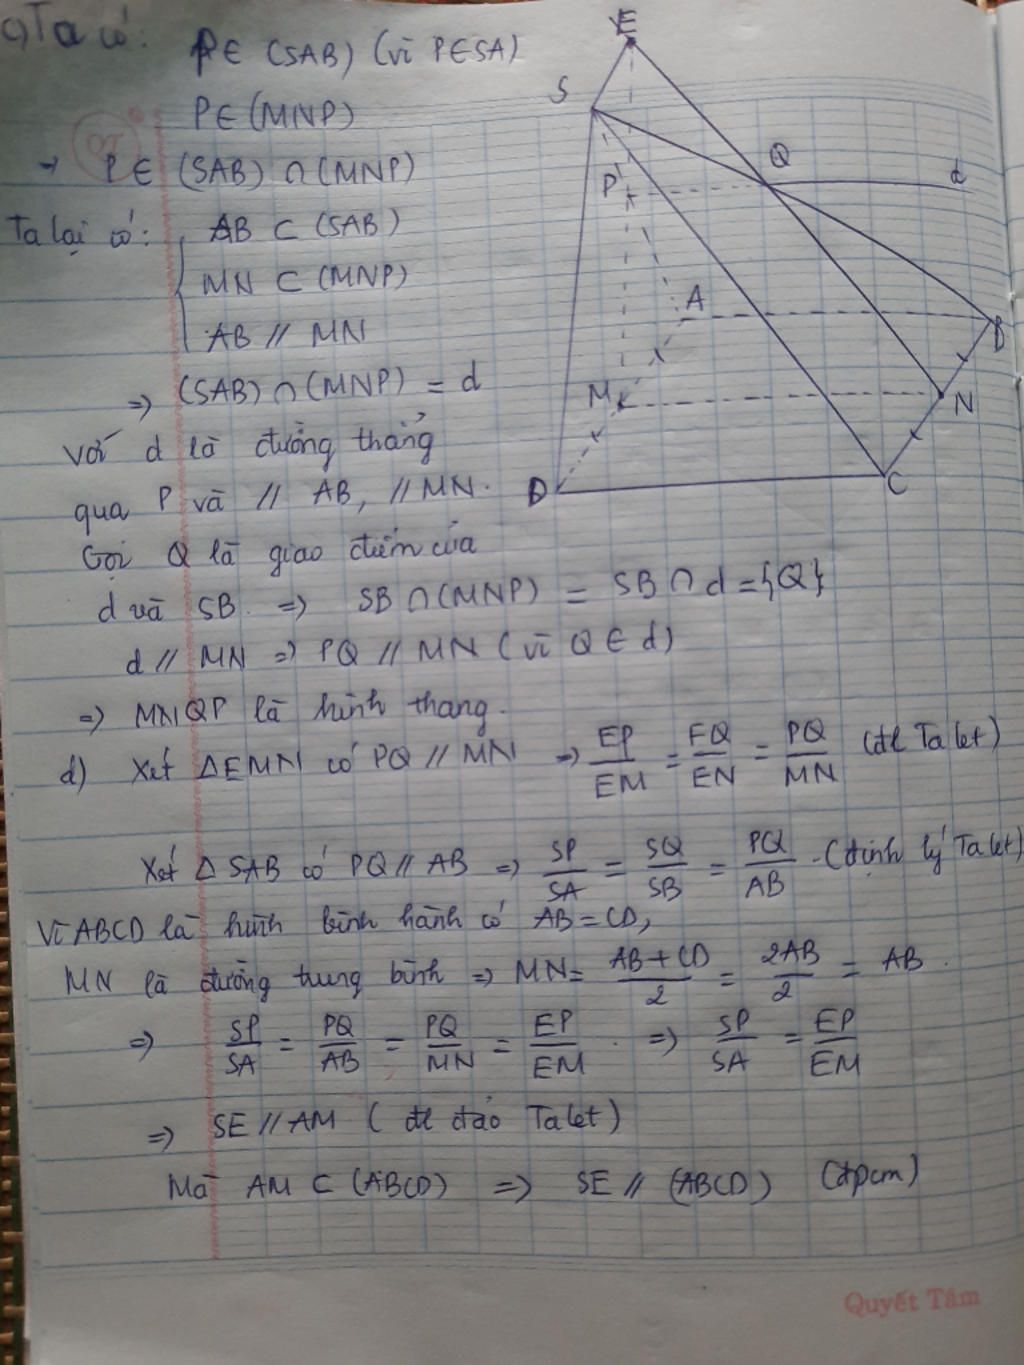 c) Ta có: P ∈ (SAB) (vì P ∈ SA)
P ∈ (MNP)
→ P ∈ (SAB) ∩ (MNP)
Ta lại có: { AB ⊂ (SAB)
MN ⊂ (MNP)
AB // MN
=> (SAB) ∩ (MNP) = d
với d là đường thẳng
qua P và // AB, // MN.
Gọi Q là giao điểm của
d và SB. => SB ∩ (MNP) = SB ∩ d = {Q}
d // MN => PQ // MN (vì Q ∈ d)
=> MNQP là hình thang.
d) Xét ΔEMN có PQ // MN => EP/EM = EQ/EN = PQ/MN (đl Talet)
Xét Δ SAB có PQ // AB => SP/SA = SQ/SB = PQ/AB. (định lý Talet)
Vì ABCD là hình bình hành có AB = CD,
MN là đường trung bình => MN = AB + CD/2 = 2AB/2 = AB.
=> SP/SA = PQ/AB = PQ/MN = EP/EM. => SP/SA = EP/EM
=> SE // AM (đl đảo Talet)
Mà AM ⊂ (ABCD) => SE // (ABCD) (đpcm)
E
S
Q
d
P
A
B
M
N
D
C
Quyết Tâm